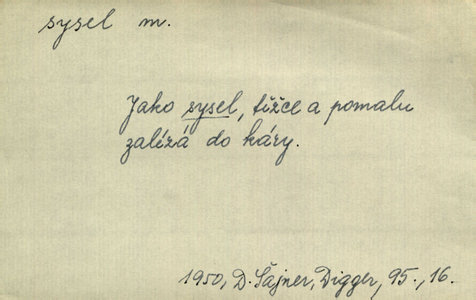 sysel m.
Jako sysel, tížce a pomalu
zalízá do káry.
1950, D. Šajner, Digger, 95., 16.